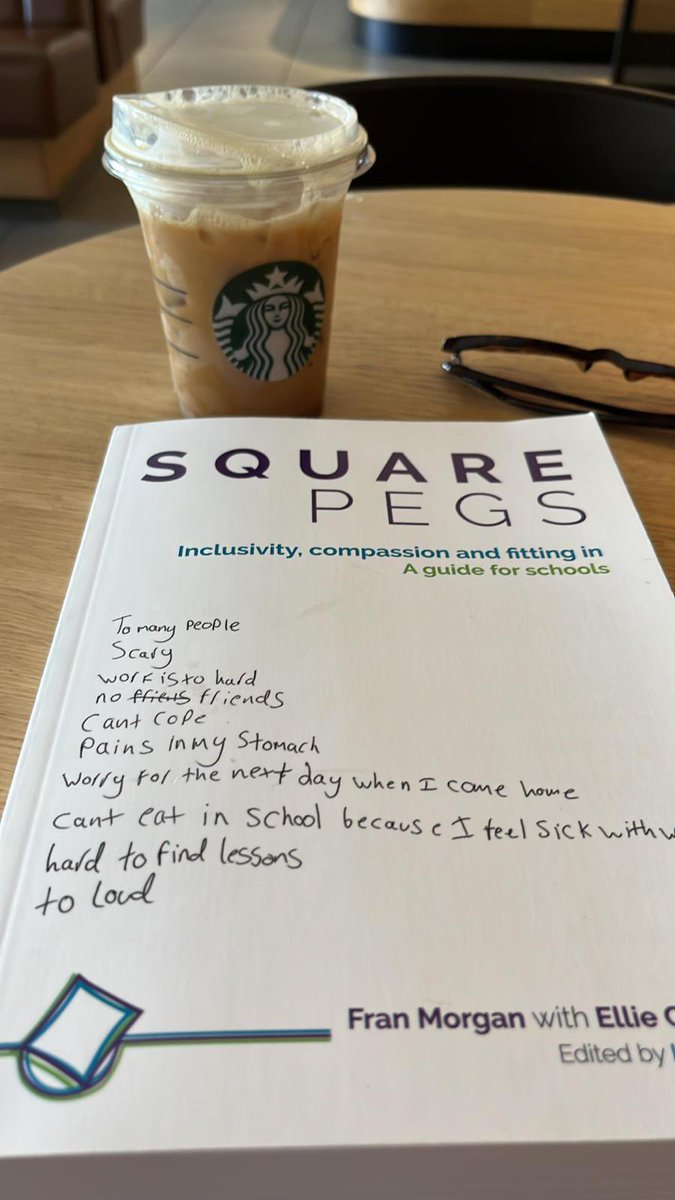 SQUARE
PEGS
Inclusivity, compassion and fitting in
A guide for schools
To many people
Scary
work is to hard
no ffiens friends
Cant cope
Pains in my Stomach
Worry for the next day when I come home
Cant eat in School because I feel Sick with
hard to find lessons
to loud
Fran Morgan with Ellie
Edited by